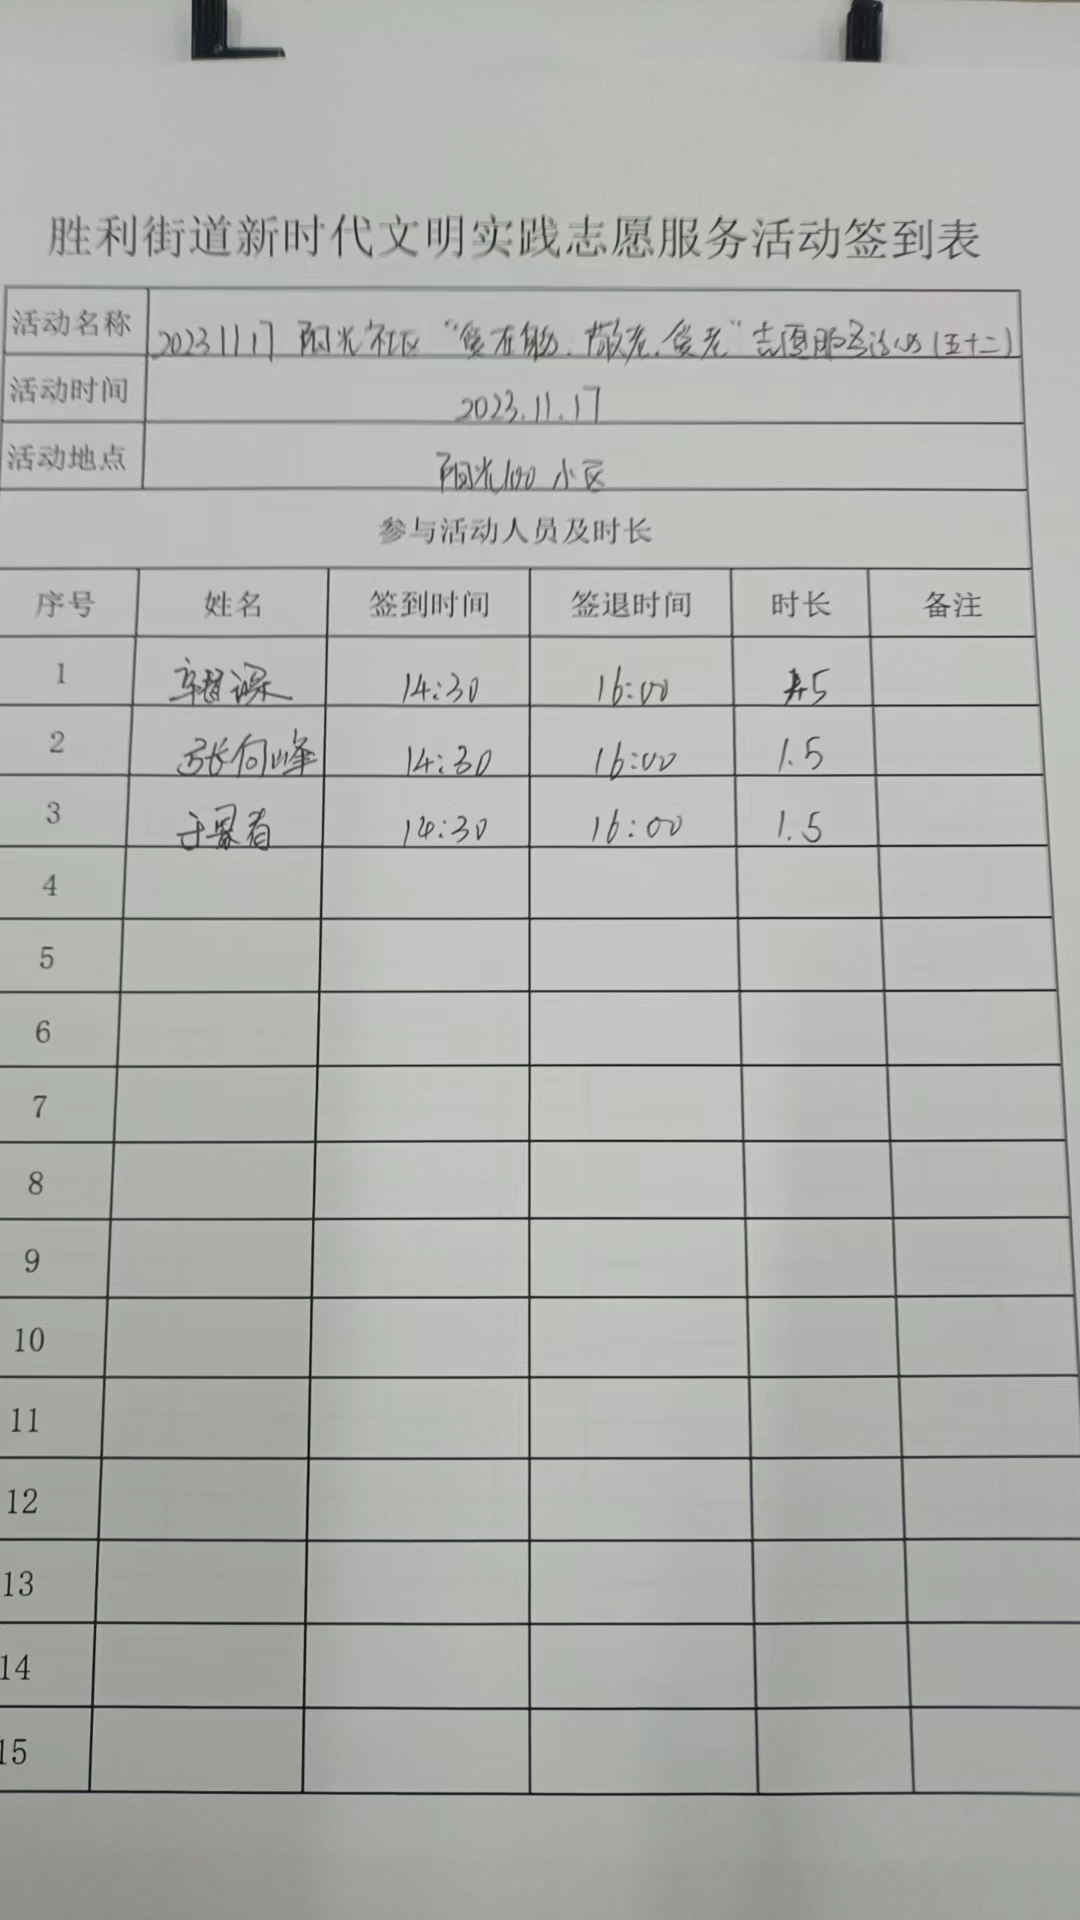 胜利街道新时代文明实践志愿服务活动签到表
活动名称 20231117 阳光社区“爱在身边、敬老、爱老”志愿服务活动(五十二)
活动时间 2023.11.17
活动地点 阳光100 小区
参与活动人员及时长
序号 姓名 签到时间 签退时间 时长 备注
1 14:30 16:00 1.5
2 张向峰 14:30 16:00 1.5
3 14:30 16:00 1.5
4
5
6
7
8
9
10
11
12
13
14
15